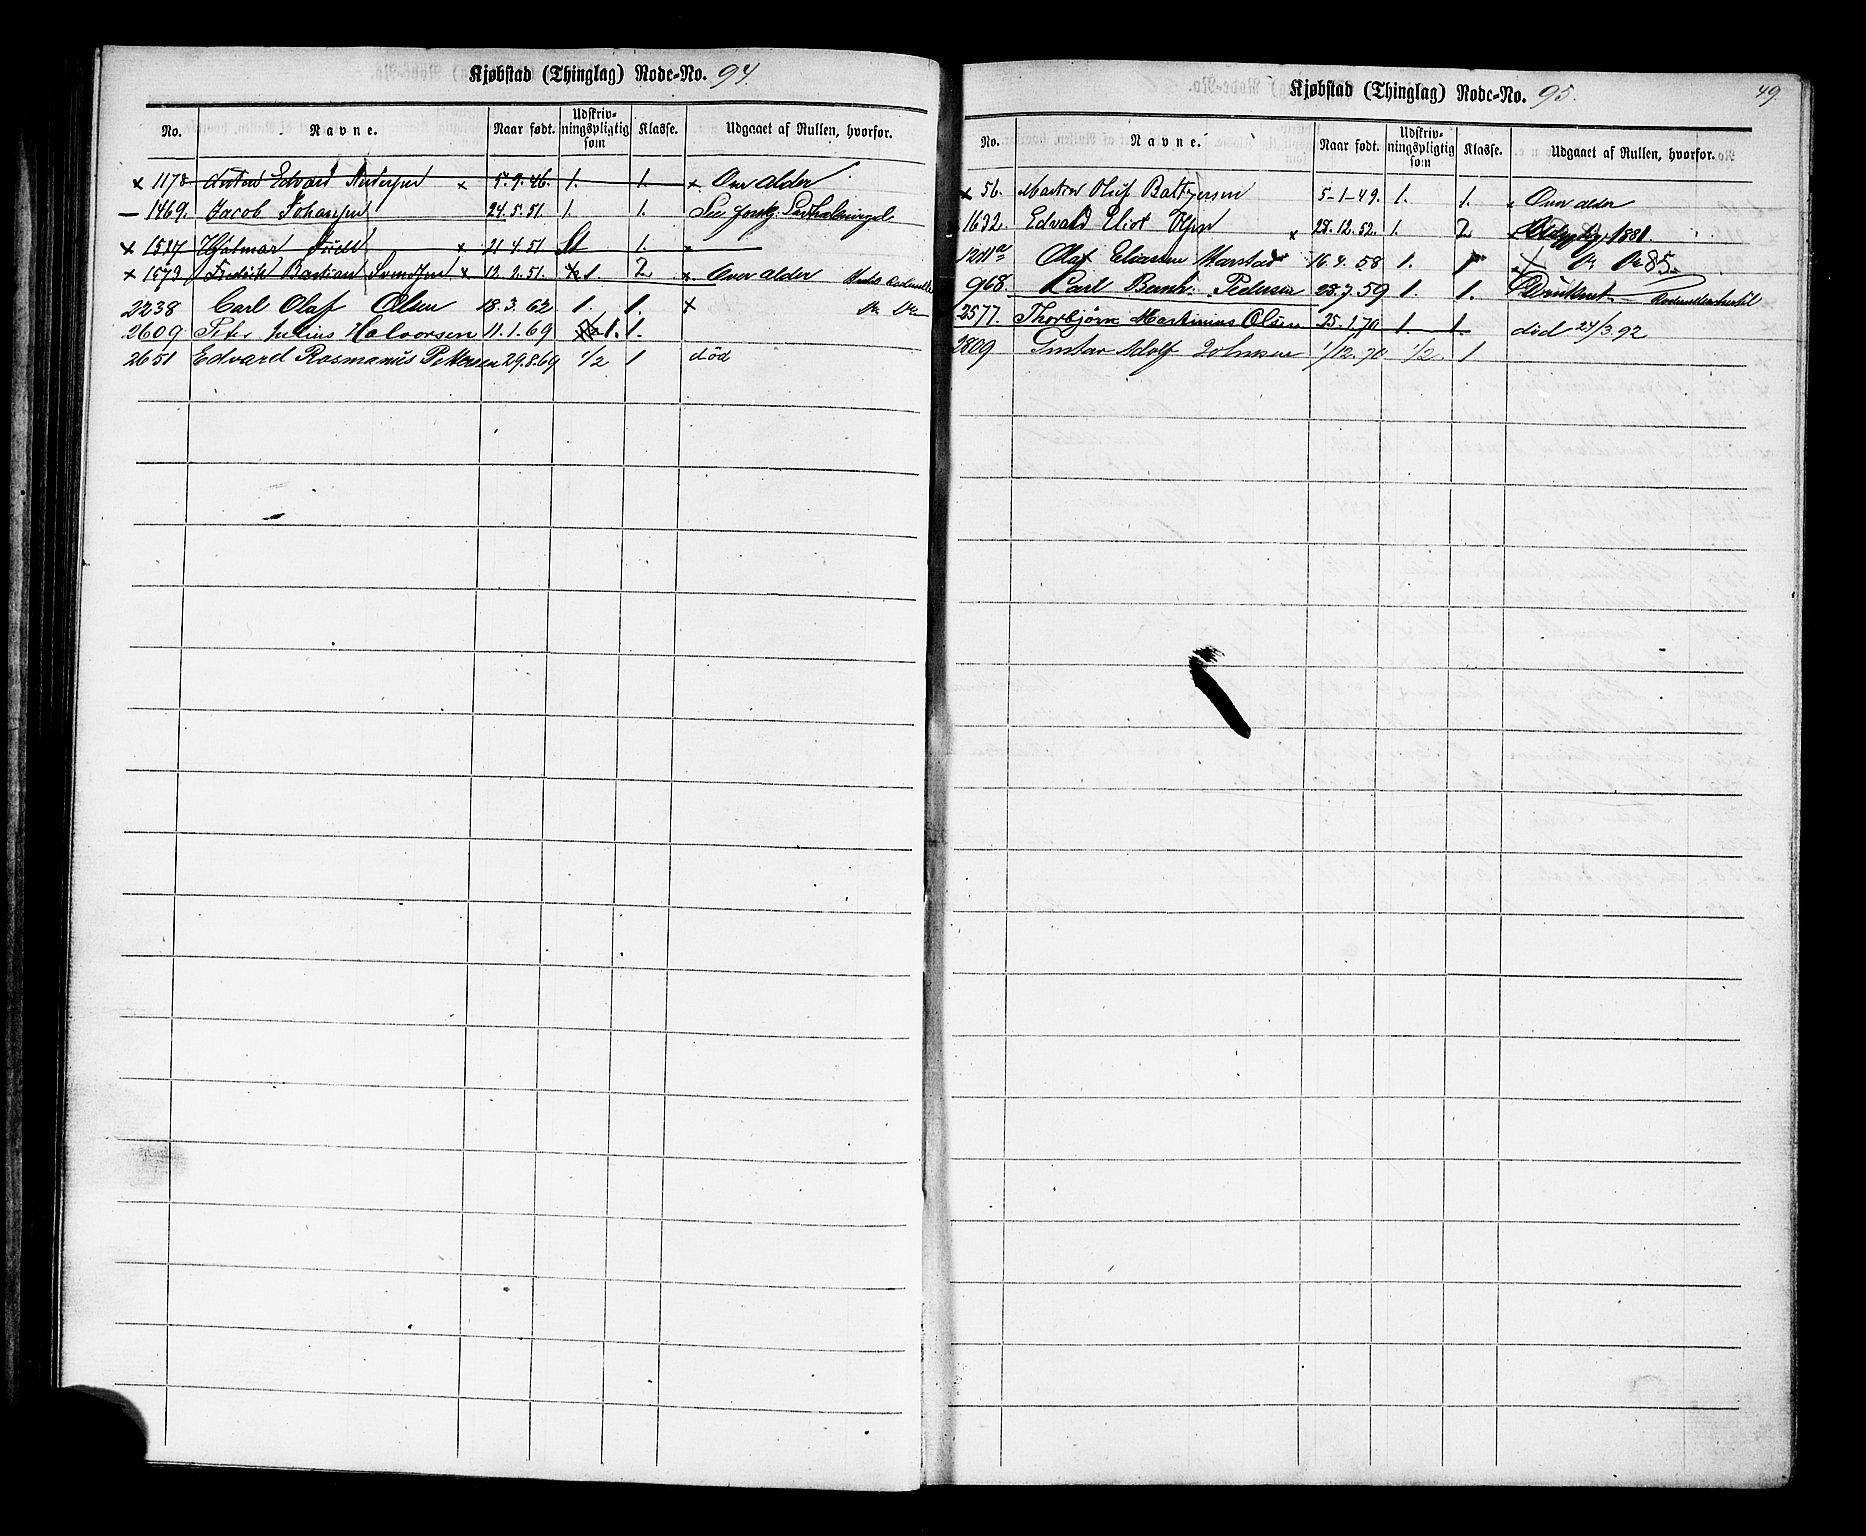 Kjøbstad (Thinglag) Rode-No. 94.
No. Navne. Naar født. Udskrivningspligtig som Klasse. Udgaaet af Rullen, hvorfor.
x 1178 Anton Edvard Andersen x 5.9.46. 1. 1. x Over alder
— 1469. Jacob Johansen 24.5.51. 1. 1.
x 1527 Hjalmar x 21.4.51 St 1. x —
x 1573 Fredrik Bastian Svendsen x 12.2.51. 1. 2 x Over alder
2238 Carl Olaf Olsen 18.3.62 1. 1. x
2609 Peter Julius Halvorsen 11.1.69 1. 1.
2651 Edvard Rasmanus Pettersen 29.8.69 1/2 1 død
Kjøbstad (Thinglag) Rode-No. 95.
49.
No. Navne. Naar født. Udskrivningspligtig som Klasse. Udgaaet af Rullen, hvorfor.
x 56. Martin Oluf Baltzersen 5-1-49. 1. 1. x Over alder
1632. Edvard Eliot Olsen x 28.12.52. 1. 2 1881
Olaf Eliasen Harstad 16.4.58 1. 1 85.
968. Carl Bernh. Pedersen 28.7.59 1. 1. Druknet —
2577. Thorbjørn Martinius Olsen 25.1.70 1 1. död 24/3 92
2809 Gustav Adolf Johnsen 1/12.70 1/2. 1